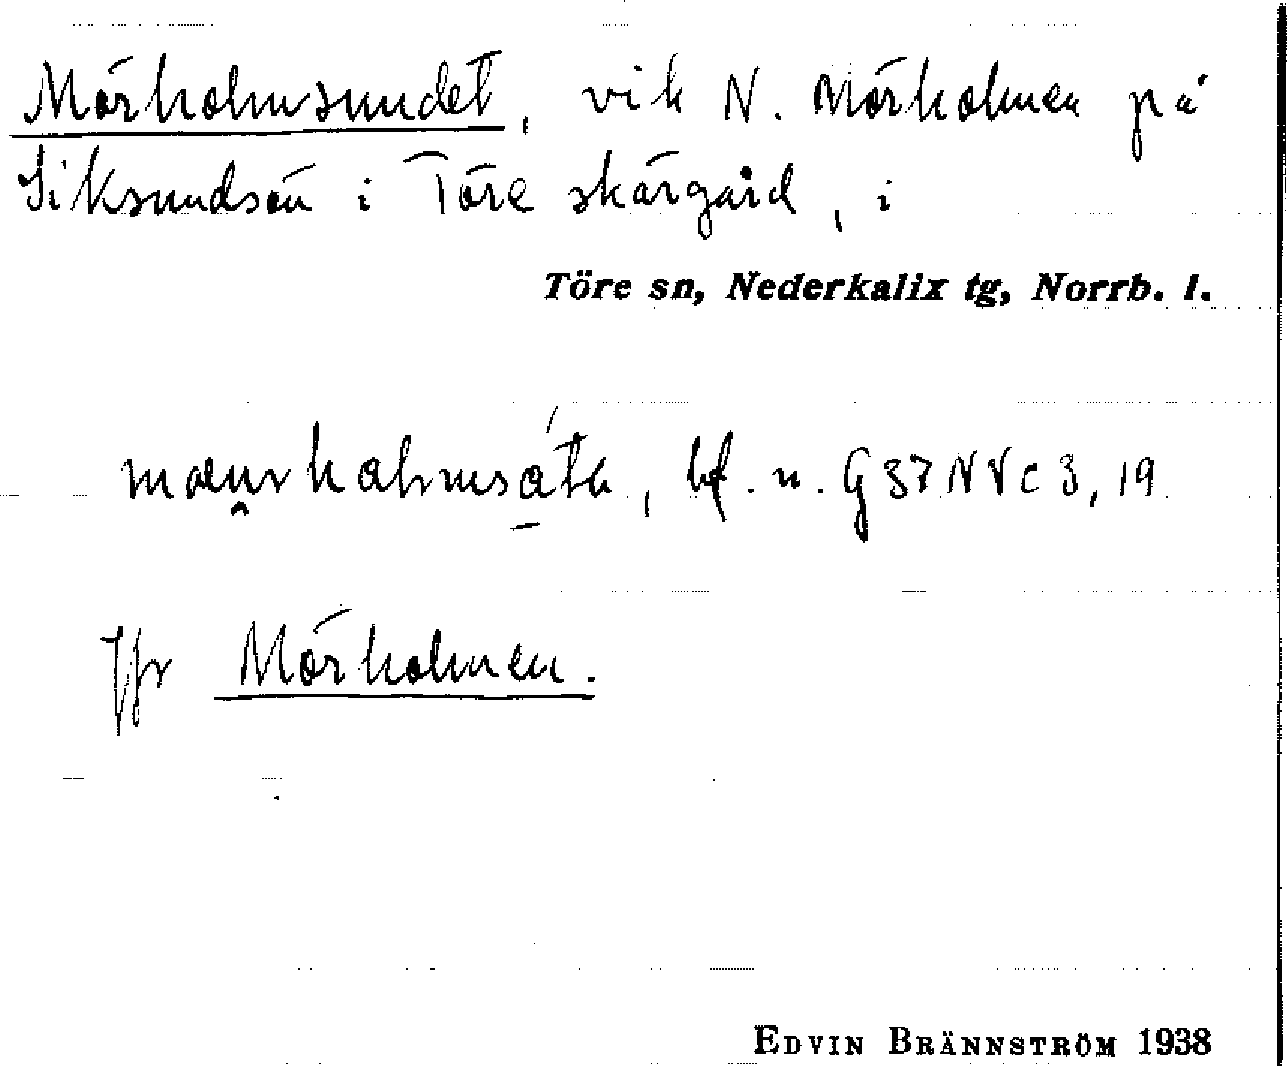 Mörholmsundet, vik N. Mörholmen på
Siksundsön i Töre skärgård, i
Töre sn, Nederkalix tg, Norrb. l.
bf. n. G 37 N V c 3, 19
Jfr Mörholmen.
EDVIN BRÄNNSTRÖM 1938